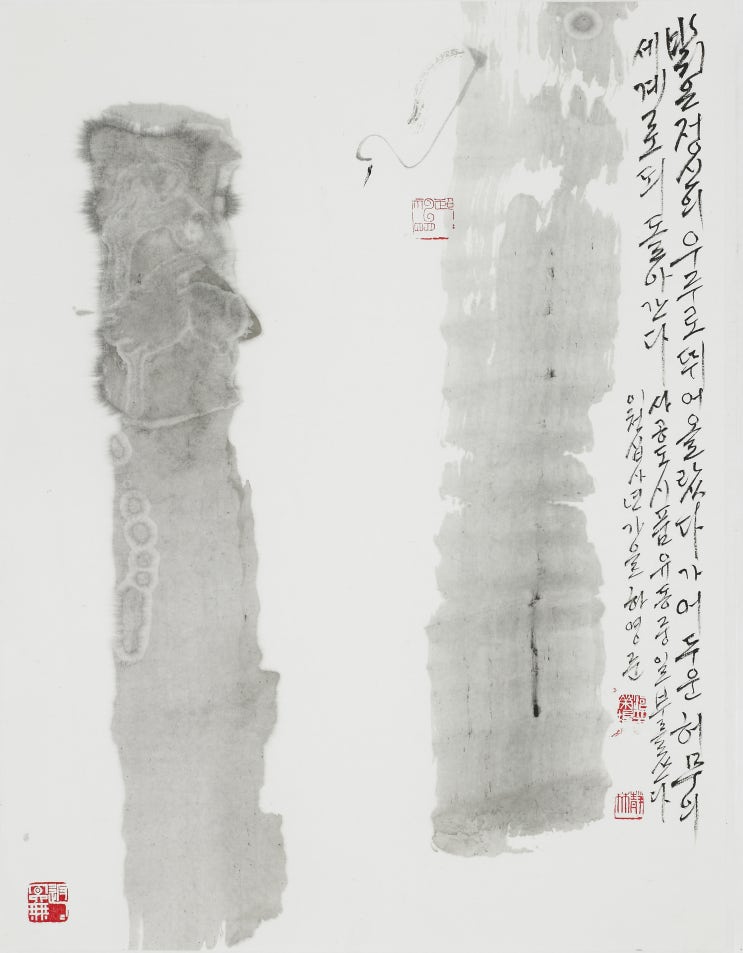 밝은 정신의 우주로 뛰어 올랐다가 어두운 허무의
세계로 되돌아간다
사공도시품 유동중 일부를 쓴다
이천십사년 가을 하영준